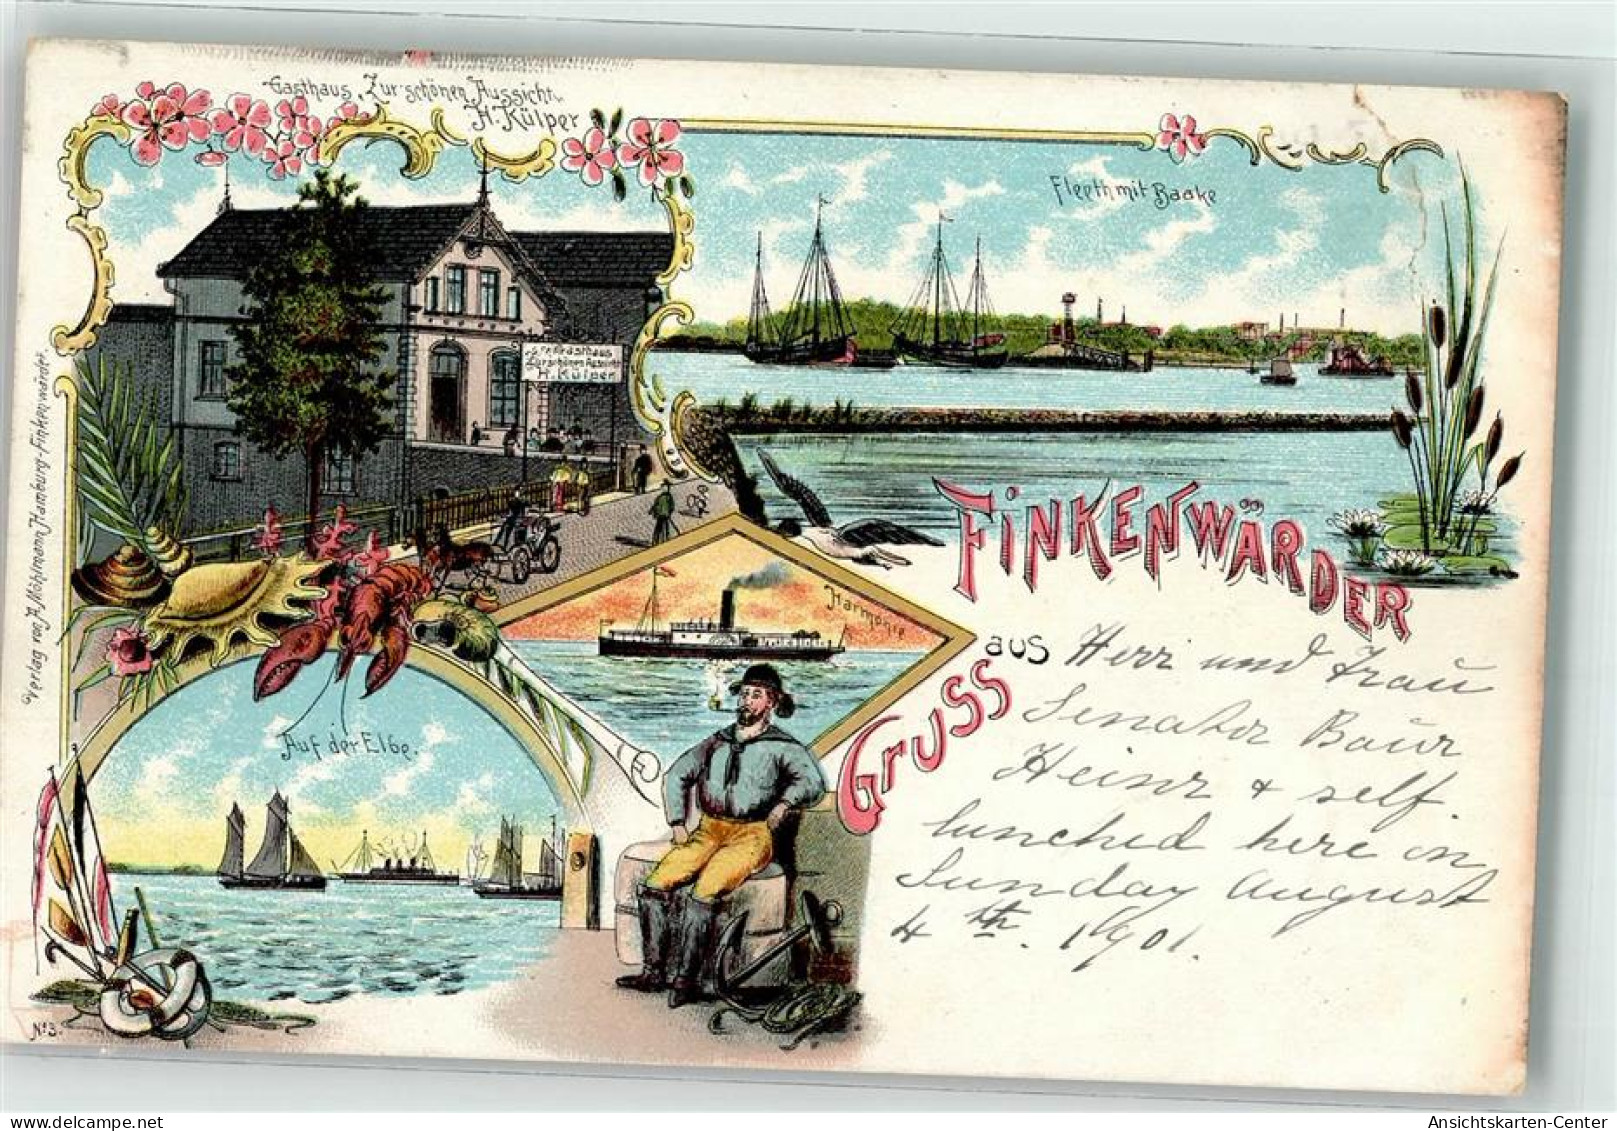 Gasthaus „Zur schönen Aussicht“
H. Külper
Fleeth mit Baake
Gasthaus
Zur schönen Aussicht
H. Külper
Verlag von A. Möhlmann Hamburg-Finkenwärder.
FINKENWÄRDER
Harmonie
GRUSS aus
Auf der Elbe.
Herr und Frau
Senator Baur
Heinz & self
lunched here on
Sunday August
4th. 1901.
No 3.
Ansichtskarten-Center